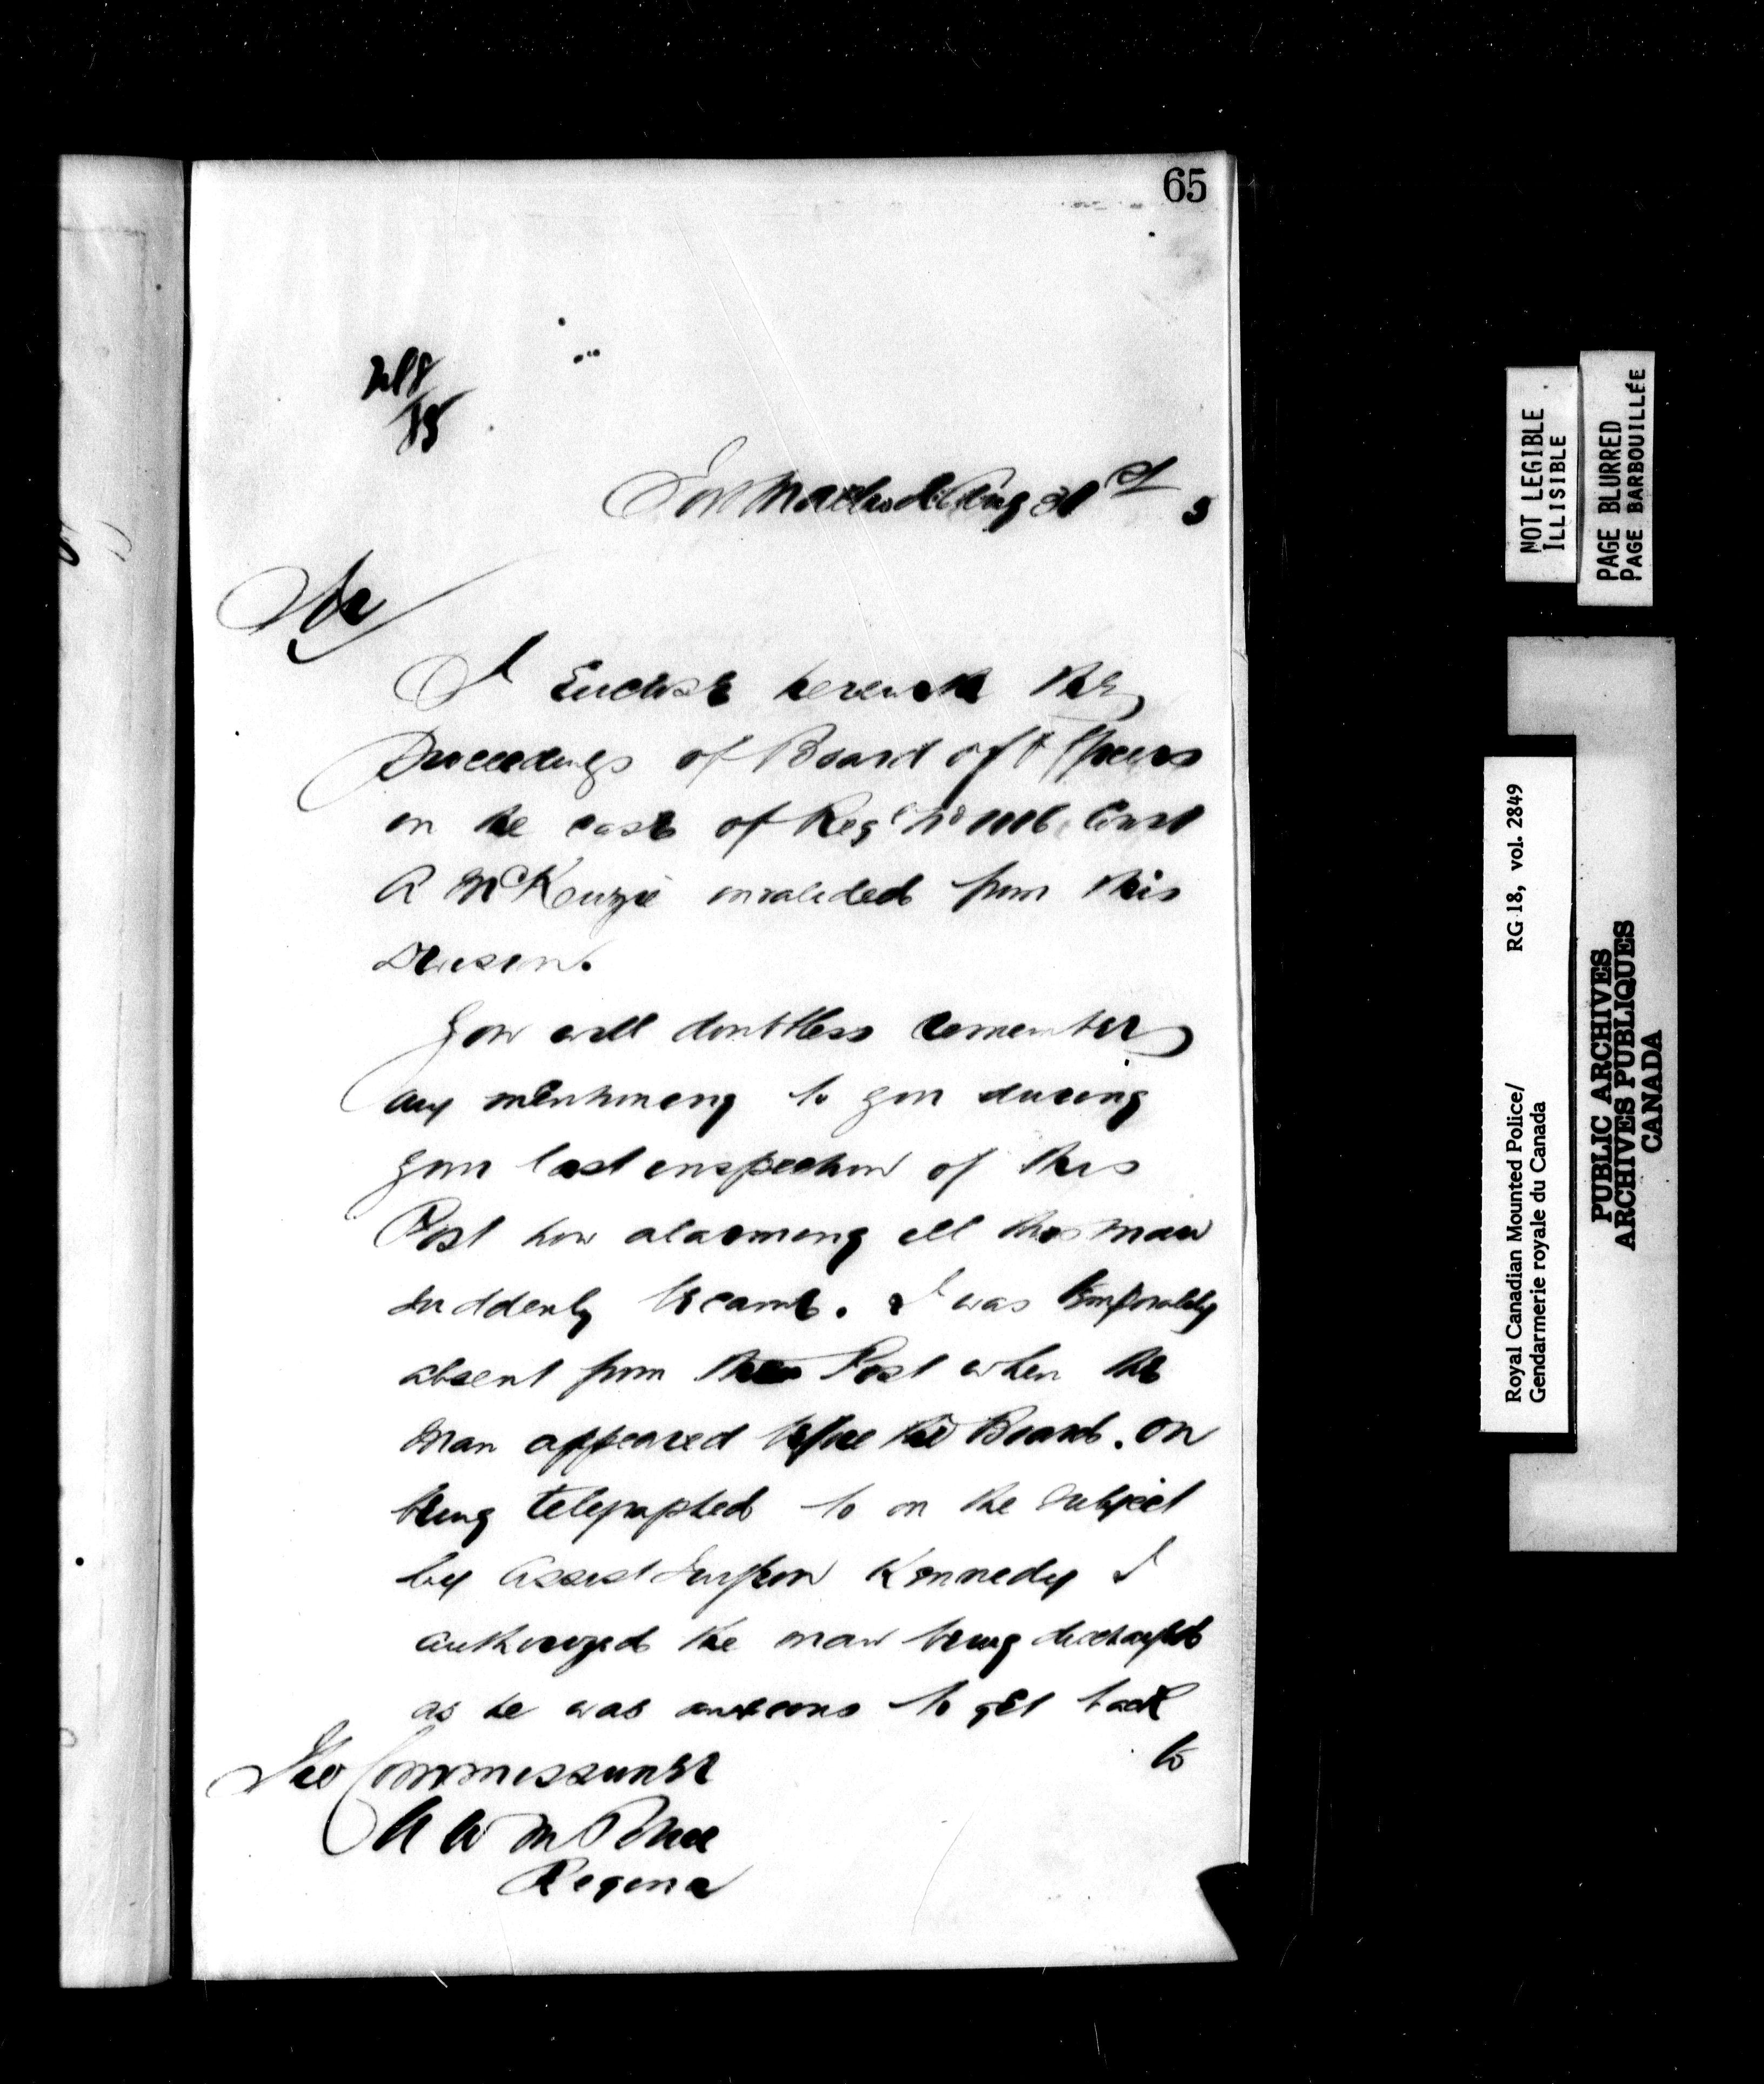 65
Fort Macleod Aug 31st 5
Sir
I Enclose herewith the
Proceedings of Board of Officers
in the case of Regl No Const
A McKenzie invalided from this
Division.
You will doubtless remember
my mentioning to you during
your last inspection of this
Post how alarming ill this man
suddenly became. I was temporarily
absent from the Post when the
man appeared before the Board. On
being telegraphed to on the subject
by Assist Surgeon Kennedy I
authorized the man being discharged
as he was anxious to get back
to
The Commissioner
N W M Police
Regina
NOT LEGIBLE
ILLISIBLE
PAGE BLURRED
PAGE BARBOUILLÉE
Royal Canadian Mounted Police/ RG 18, vol. 2849
Gendarmerie royale du Canada
PUBLIC ARCHIVES
ARCHIVES PUBLIQUES
CANADA